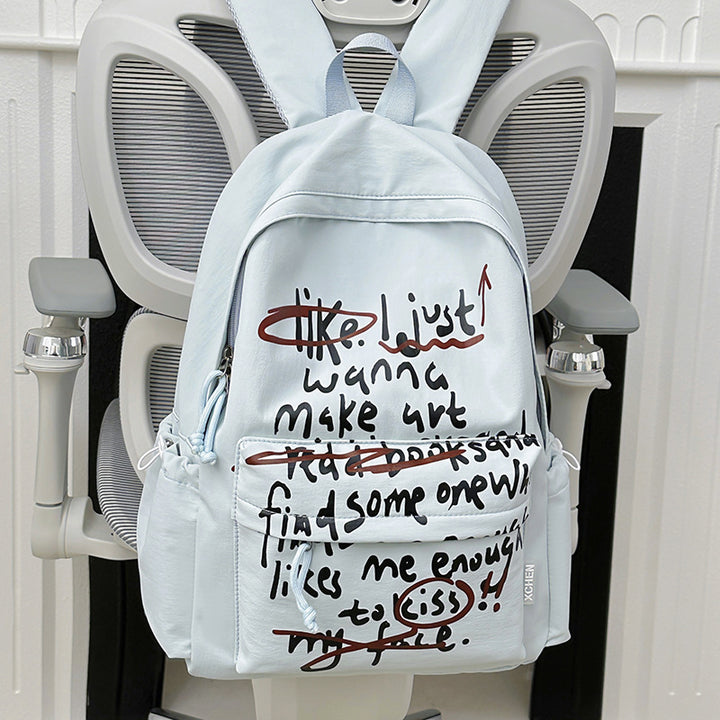 like. I just
wanna
make art
read books and
find some one wh
likes me enough
to kiss !!
my face.
XCHEN